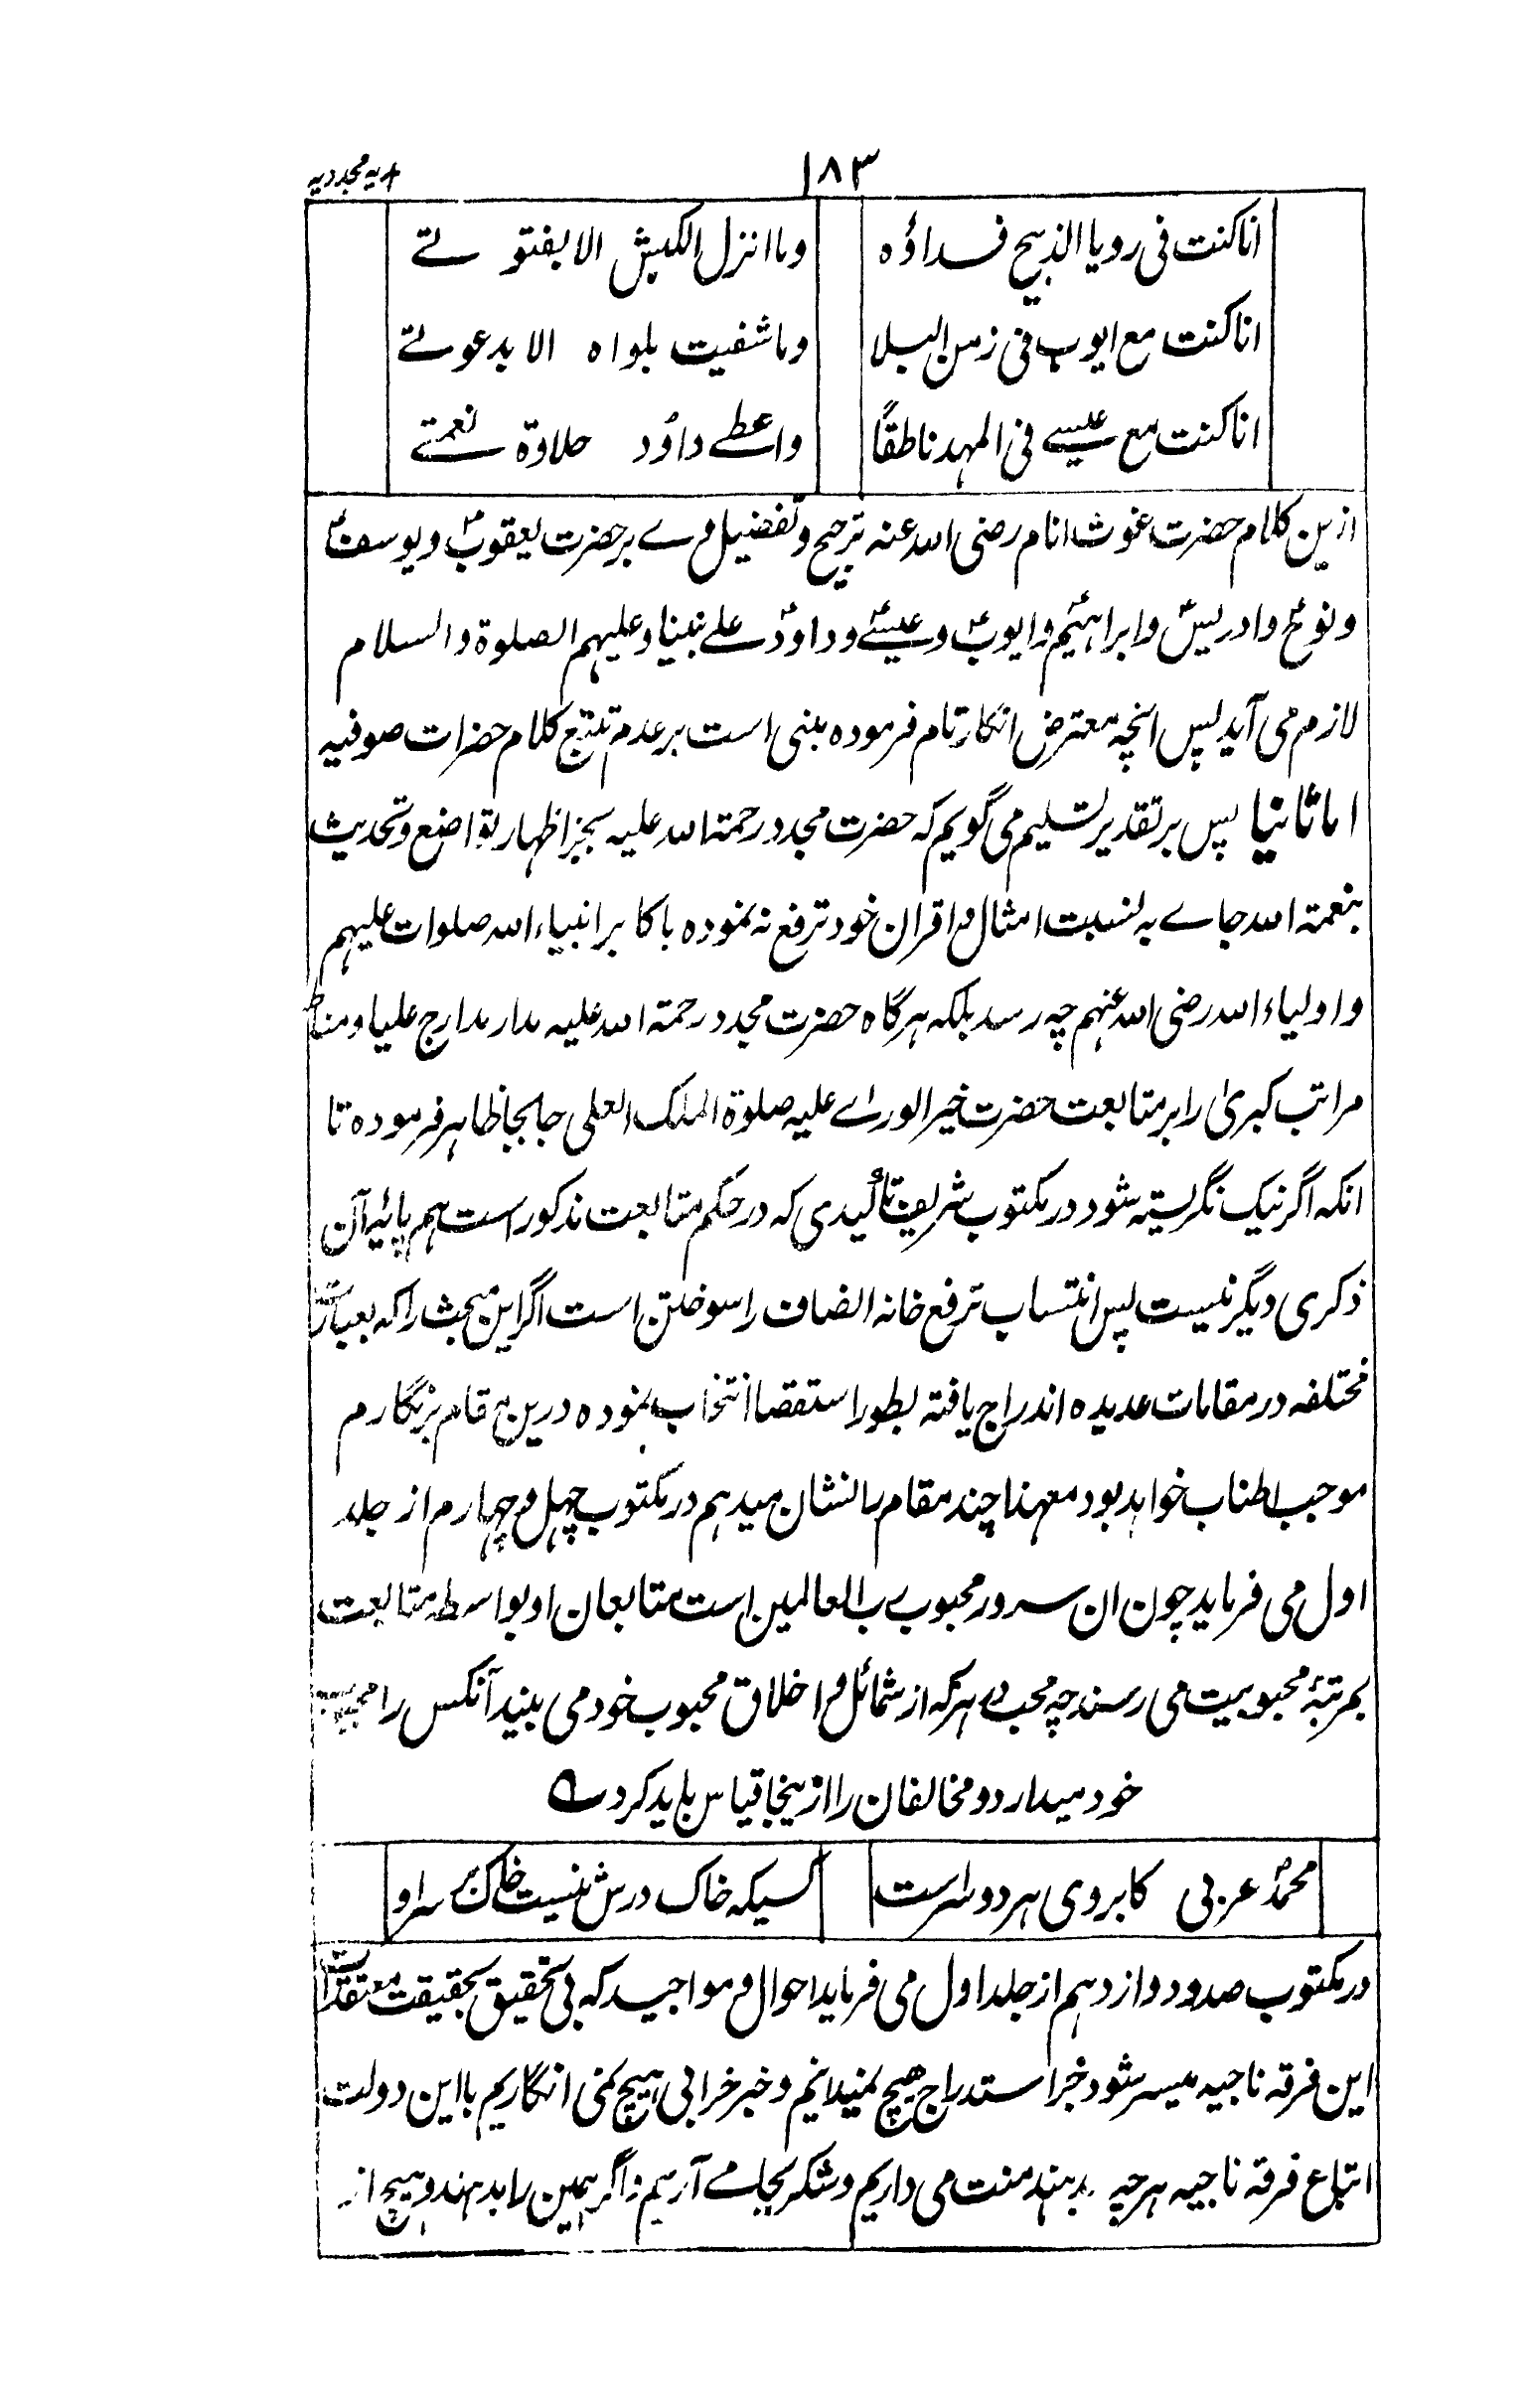 ۱۸۳
ہدیہ مجددیہ
انا کنت فی رویا الذبیح فداؤہ وما انزل الکبش الا بفتوتے
انا کنت مع ایوب فی زمن البلا وما شفیت بلواہ الا بدعوتے
انا کنت مع عیسے فی المہد ناطقاً واعطے داؤد حلاوۃ نغمتے
ازین کلام حضرت غوث انام رضی اللہ عنہ ترجیح و تفضیل وے بر حضرت یعقوبؑ و یوسفؑ
و نوحؑ و ادریسؑ و ابراہیمؑ و ایوبؑ و عیسےؑ و داودؑ علے نبینا و علیہم الصلوۃ والسلام
لازم می آید پس انچہ معترض انکار تام فرمودہ مبنی است بر عدم تتبع کلام حضرات صوفیہ
اما ثانیا پس بر تقدیر تسلیم می گویم کہ حضرت مجدد رحمۃ اللہ علیہ بجز اظہار تواضع و تحدیث
بنعمۃ اللہ جاے بہ نسبت امثال و اقران خود ترفع نہ نمودہ با کابر انبیاء اللہ صلوات علیہم
و اولیاء اللہ رضی اللہ عنہم چہ رسد بلکہ ہرگاہ حضرت مجدد رحمۃ اللہ علیہ مدار مدارج علیا و مناط
مراتب کبریٰ را بر متابعت حضرت خیر الوراے علیہ صلوۃ الملک العلی جابجا ظاہر فرمودہ تا
انکہ اگر نیک نگریستہ شود در مکتوب شریف تاکیدی کہ در حکم متابعت مذکور است ہم پایۂ آن
ذکری دیگر نیست پس انتساب ترفع خانہ انصاف را سوختن است اگر این مبحث را کہ بعبارت
مختلفہ در مقامات عدیدہ اندراج یافتہ بطور استقصا انتخاب نمودہ درین مقام برنگارم
موجب اطناب خواہد بود معہذا چند مقام را نشان میدہم در مکتوب چہل و چہارم از جلد
اول می فرماید چون ان سرور محبوب رب العالمین است متابعان او بواسطہ متابعت
بمرتبۂ محبوبیت می رسند چہ محب در ہر کہ از شمائل و اخلاق محبوب خود می بیند آنکس را محبوب
خود میدارد و مخالفان را ازینجا قیاس باید کرد ے
محمدؐ عربی کابروی ہر دو سراست کسیکہ خاک درش نیست خاک بر سر او
در مکتوب صد و دوازدہم از جلد اول می فرماید احوال و مواجید کہ بی تحقیق بحقیقت معتقدات
این فرقہ ناجیہ میسر شود جز استدراج ہیچ نمیدانیم و جز خرابی ہیچ نمی انگاریم با این دولت
اتباع فرقۂ ناجیہ ہر چہ بدہند منت می داریم و شکر بجا مے آریم و اگر ہمین را بدہند و ہیچ از